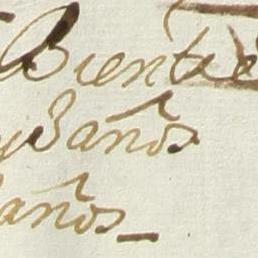 Biente e
y 3 años
años